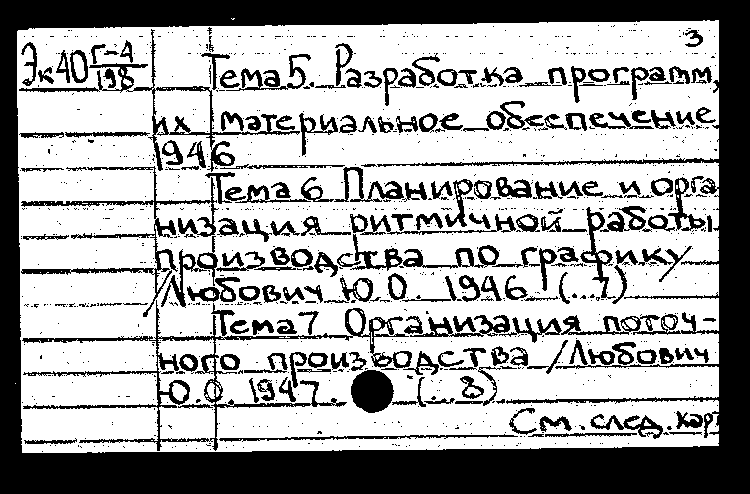 3
Эк40 Г-4/198 Тема 5. Разработка программ,
их материальное обеспечение
1946
Тема 6 Планирование и орга
низация ритмичной работы
производства по графику /
/Любович Ю.О. 1946 (...7)
Тема 7 Организация поточ-
ного производства /Любович
Ю.О. 1947. (...8)
См. след. карт